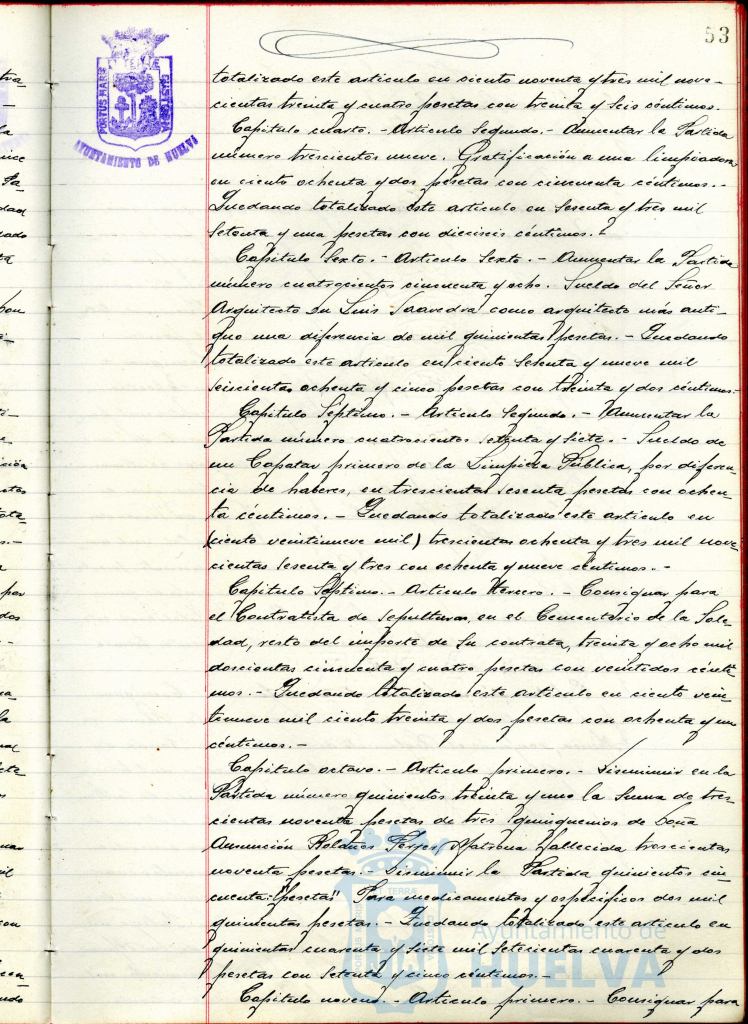 53
PORTUS MARIS
ET TERRÆ
CUSTODIA
AYUNTAMIENTO DE HUELVA
totalizado este articulo en ciento noventa y tres mil nove-
cientas treinta y cuatro pesetas con treinta y seis céntimos.
Capitulo cuarto. - Articulo Segundo. - Aumentar la Partida
número trescientos nueve. Gratificación a una limpiadora
en ciento ochenta y dos pesetas con cincuenta céntimos. -
Quedando totalizado este articulo en Sesenta y tres mil
Setenta y una pesetas con dieciseis céntimos.
Capitulo Sexto. - Articulo Sexto. - Aumentar la Partida
número cuatrocientos cincuenta y ocho. Sueldo del Señor
Arquitecto Dn Luis Saavedra como arquitecto más anti-
guo una diferencia de mil quinientas pesetas. - Quedando
totalizado este articulo en ciento Sesenta y nueve mil
seiscientas ochenta y cinco pesetas con treinta y dos céntimos. -
Capitulo Séptimo. - Articulo Segundo. - Aumentar la
Partida número cuatrocientos setenta y siete. - Sueldo de
un Capataz primero de la Limpieza Pública, por diferen-
cia de haberes, en trescientas sesenta pesetas con ochen-
ta céntimos. - Quedando totalizado este articulo en
(ciento veintinueve mil) trescientas ochenta y tres mil nove-
cientas Sesenta y tres con ochenta y nueve céntimos. -
Capitulo Séptimo. - Articulo tercero. - Consignar para
el Contratista de Sepulturas, en el Cementerio de la Sole-
dad, resto del importe de su contrata, treinta y ocho mil
doscientas cincuenta y cuatro pesetas con veintidos cénti-
mos. - Quedando totalizado este articulo en ciento vein-
tinueve mil ciento treinta y dos pesetas con ochenta y un
céntimos. -
Capitulo octavo. - Articulo primero. - Disminuir en la
Partida número quinientos treinta y uno la Suma de tres-
cientas noventa pesetas de tres quinquenios de Doña
Asunción Matrona fallecida trescientas
noventa pesetas. - Disminuir la Partida quinientos cin-
cuenta: "pesetas" Para medicamentos y especificos dos mil
quinientas pesetas. - Quedando totalizado este articulo en
quinientas cuarenta y siete mil Setecientas cuarenta y dos
pesetas con Setenta y cinco céntimos. -
Capitulo noveno. - Articulo primero. - Consignar para
Ayuntamiento de
HUELVA